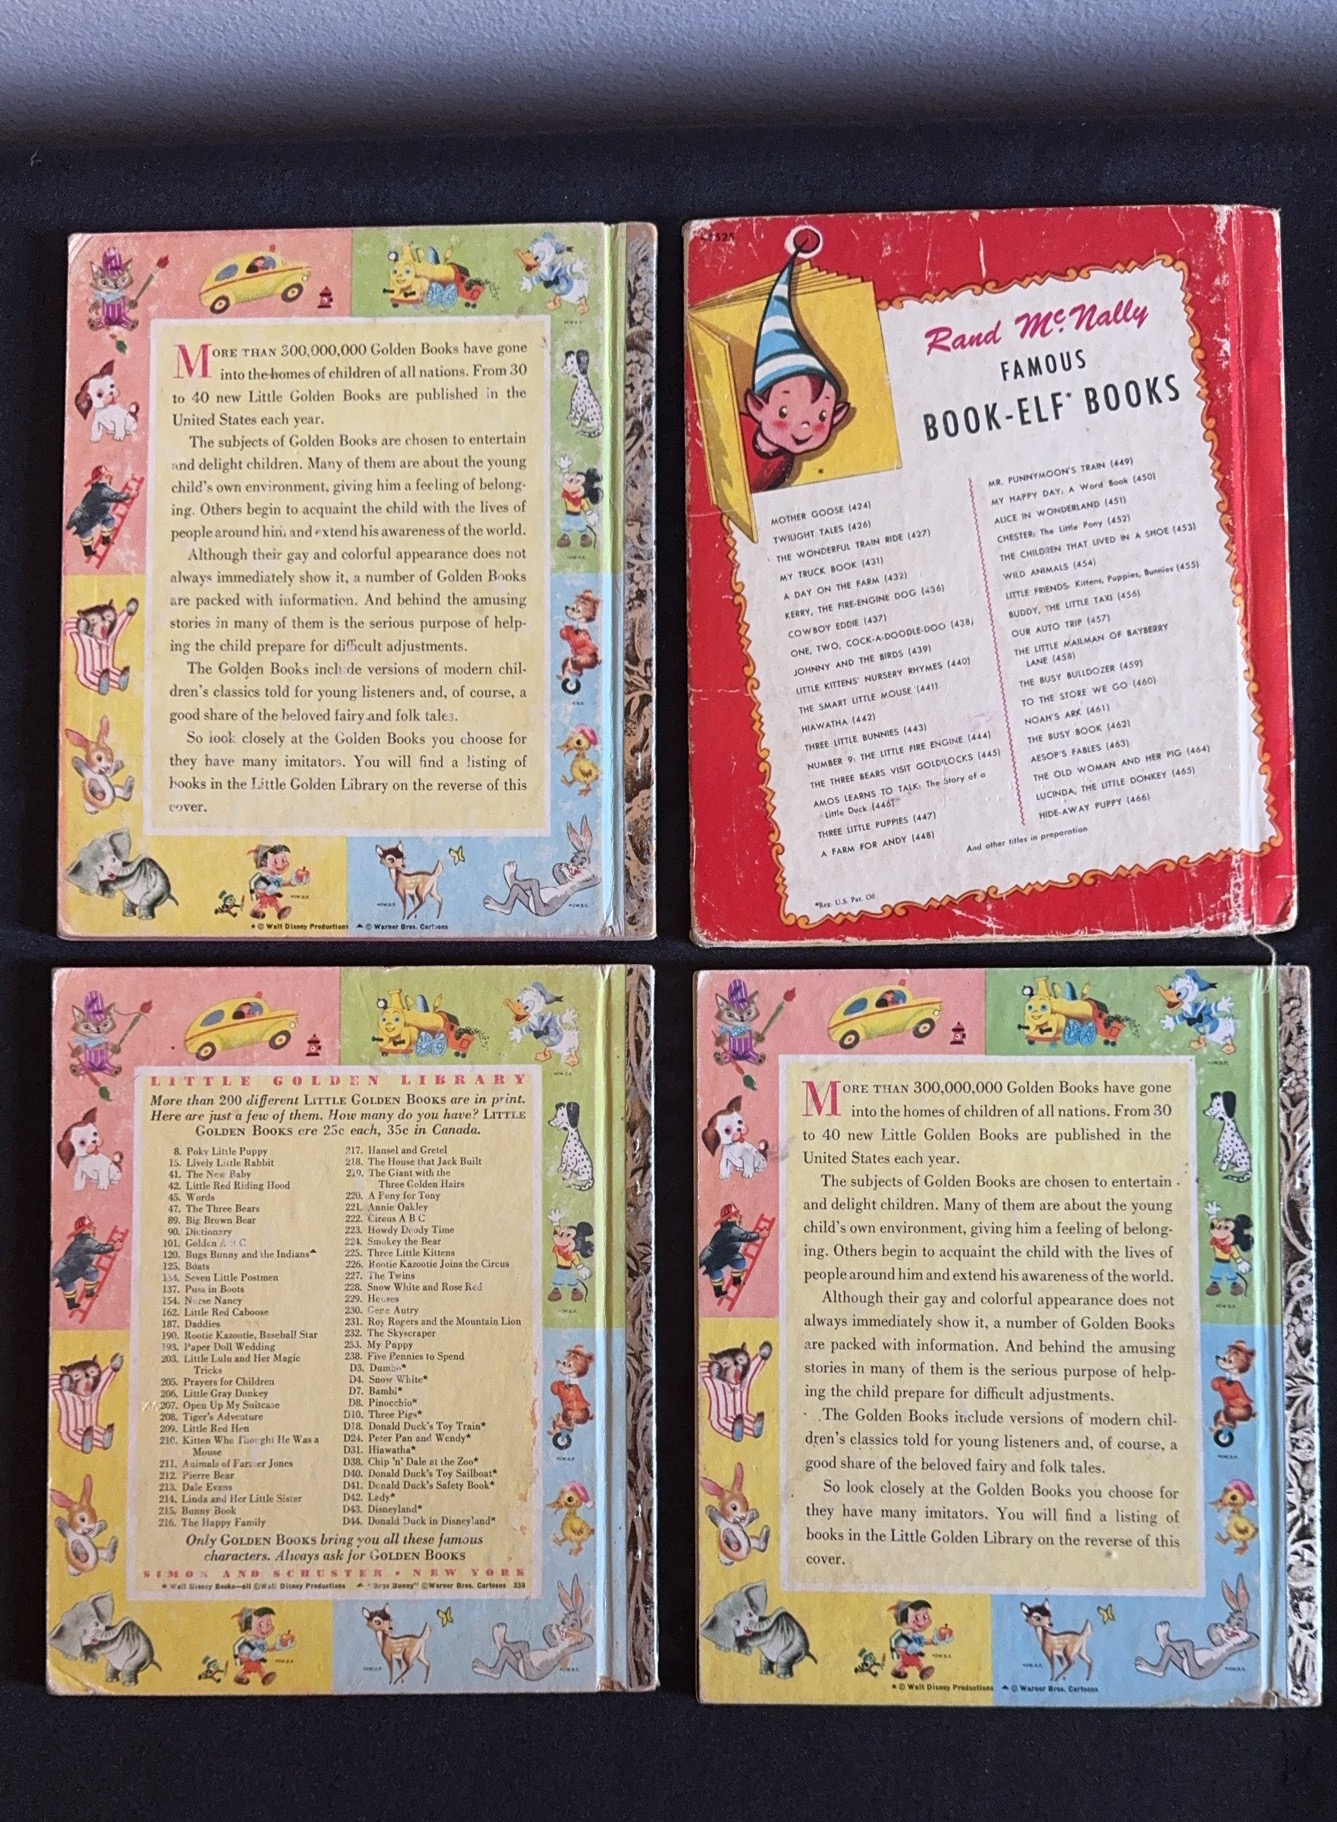 MORE THAN 300,000,000 Golden Books have gone
into the homes of children of all nations. From 30
to 40 new Little Golden Books are published in the
United States each year.
The subjects of Golden Books are chosen to entertain
and delight children. Many of them are about the young
child's own environment, giving him a feeling of belong-
ing. Others begin to acquaint the child with the lives of
people around him and extend his awareness of the world.
Although their gay and colorful appearance does not
always immediately show it, a number of Golden Books
are packed with information. And behind the amusing
stories in many of them is the serious purpose of help-
ing the child prepare for difficult adjustments.
The Golden Books include versions of modern chil-
dren's classics told for young listeners and, of course, a
good share of the beloved fairy and folk tales.
So look closely at the Golden Books you choose for
they have many imitators. You will find a listing of
books in the Little Golden Library on the reverse of this
cover.
★ © Walt Disney Productions ▲ © Warner Bros. Cartoons
Rand McNally
FAMOUS
BOOK-ELF* BOOKS
MOTHER GOOSE (424)
TWILIGHT TALES (426)
THE WONDERFUL TRAIN RIDE (427)
MY TRUCK BOOK (431)
A DAY ON THE FARM (432)
KERRY, THE FIRE-ENGINE DOG (436)
COWBOY EDDIE (437)
ONE, TWO, COCK-A-DOODLE-DOO (438)
JOHNNY AND THE BIRDS (439)
LITTLE KITTENS' NURSERY RHYMES (440)
THE SMART LITTLE MOUSE (441)
HIAWATHA (442)
THREE LITTLE BUNNIES (443)
NUMBER 9: THE LITTLE FIRE ENGINE (444)
THE THREE BEARS VISIT GOLDILOCKS (445)
AMOS LEARNS TO TALK: The Story of a
Little Duck (446)
THREE LITTLE PUPPIES (447)
A FARM FOR ANDY (448)
MR. PUNNYMOON'S TRAIN (449)
MY HAPPY DAY: A Word Book (450)
ALICE IN WONDERLAND (451)
CHESTER: The Little Pony (452)
THE CHILDREN THAT LIVED IN A SHOE (453)
WILD ANIMALS (454)
LITTLE FRIENDS: Kittens, Puppies, Bunnies (455)
BUDDY, THE LITTLE TAXI (456)
OUR AUTO TRIP (457)
THE LITTLE MAILMAN OF BAYBERRY
LANE (458)
THE BUSY BULLDOZER (459)
TO THE STORE WE GO (460)
NOAH'S ARK (461)
THE BUSY BOOK (462)
AESOP'S FABLES (463)
THE OLD WOMAN AND HER PIG (464)
LUCINDA, THE LITTLE DONKEY (465)
HIDE-AWAY PUPPY (466)
And other titles in preparation
*Reg. U.S. Pat. Off.
LITTLE GOLDEN LIBRARY
More than 200 different LITTLE GOLDEN BOOKS are in print.
Here are just a few of them. How many do you have? LITTLE
GOLDEN BOOKS are 25c each, 35c in Canada.
8. Poky Little Puppy
15. Lively Little Rabbit
41. The New Baby
42. Little Red Riding Hood
45. Words
47. The Three Bears
89. Big Brown Bear
90. Dictionary
101. Golden A B C
120. Bugs Bunny and the Indians▲
125. Boats
134. Seven Little Postmen
137. Puss in Boots
154. Nurse Nancy
162. Little Red Caboose
187. Daddies
190. Rootie Kazootie, Baseball Star
193. Paper Doll Wedding
203. Little Lulu and Her Magic
Tricks
205. Prayers for Children
206. Little Gray Donkey
207. Open Up My Suitcase
208. Tiger's Adventure
209. Little Red Hen
210. Kitten Who Thought He Was a
Mouse
211. Animals of Farmer Jones
212. Pierre Bear
213. Dale Evans
214. Linda and Her Little Sister
215. Bunny Book
216. The Happy Family
217. Hansel and Gretel
218. The House that Jack Built
219. The Giant with the
Three Golden Hairs
220. A Pony for Tony
221. Annie Oakley
222. Circus A B C
223. Howdy Doody Time
224. Smokey the Bear
225. Three Little Kittens
226. Rootie Kazootie Joins the Circus
227. The Twins
228. Snow White and Rose Red
229. Houses
230. Gene Autry
231. Roy Rogers and the Mountain Lion
232. The Skyscraper
233. My Puppy
238. Five Pennies to Spend
D3. Dumbo★
D4. Snow White★
D7. Bambi★
D8. Pinocchio★
D10. Three Pigs★
D18. Donald Duck's Toy Train★
D24. Peter Pan and Wendy★
D31. Hiawatha★
D38. Chip 'n' Dale at the Zoo★
D40. Donald Duck's Toy Sailboat★
D41. Donald Duck's Safety Book★
D42. Lady★
D43. Disneyland★
D44. Donald Duck in Disneyland★
Only GOLDEN BOOKS bring you all these famous
characters. Always ask for GOLDEN BOOKS
SIMON AND SCHUSTER • NEW YORK
★ Walt Disney Books—all ©Walt Disney Productions ▲ "Bugs Bunny" ©Warner Bros. Cartoons 339
MORE THAN 300,000,000 Golden Books have gone
into the homes of children of all nations. From 30
to 40 new Little Golden Books are published in the
United States each year.
The subjects of Golden Books are chosen to entertain
and delight children. Many of them are about the young
child's own environment, giving him a feeling of belong-
ing. Others begin to acquaint the child with the lives of
people around him and extend his awareness of the world.
Although their gay and colorful appearance does not
always immediately show it, a number of Golden Books
are packed with information. And behind the amusing
stories in many of them is the serious purpose of help-
ing the child prepare for difficult adjustments.
The Golden Books include versions of modern chil-
dren's classics told for young listeners and, of course, a
good share of the beloved fairy and folk tales.
So look closely at the Golden Books you choose for
they have many imitators. You will find a listing of
books in the Little Golden Library on the reverse of this
cover.
★ © Walt Disney Productions ▲ © Warner Bros. Cartoons